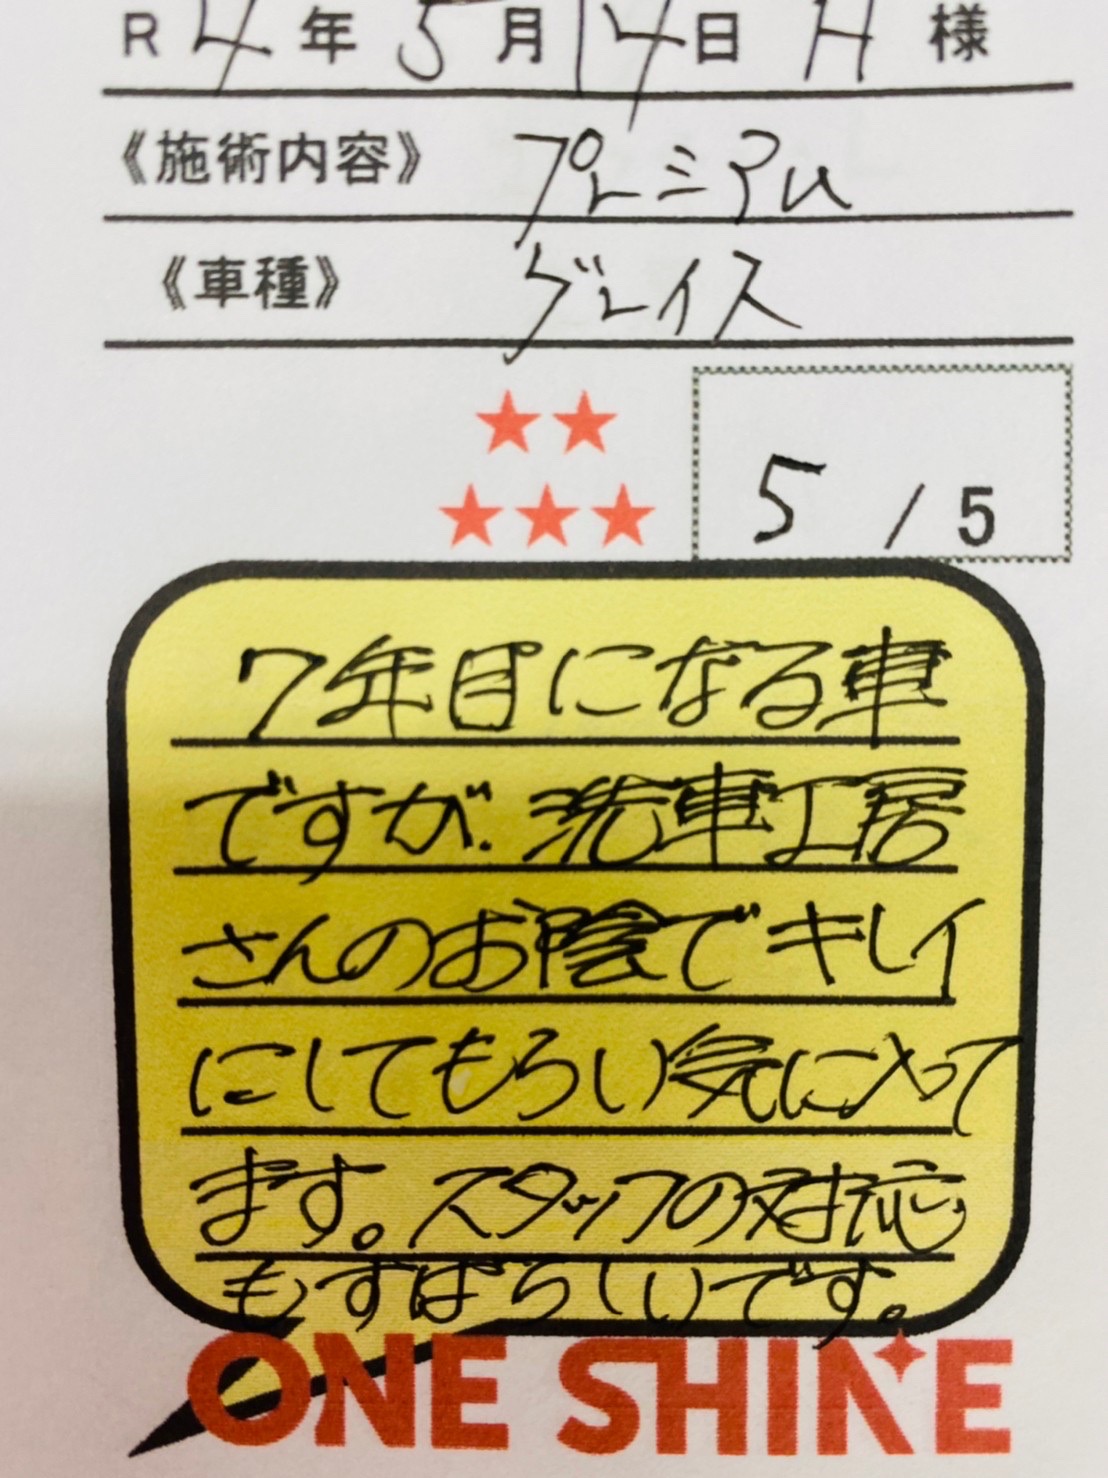 R 4 年 5 月 14 日 H 様
《施術内容》 プレミアム
《車種》 グレイス
★★
★★★
5 / 5
7年目になる車
ですが、洗車工房
さんのお陰でキレイ
にしてもらい気に入って
ます。スタッフの対応
もすばらしいです。
ONE SHINE